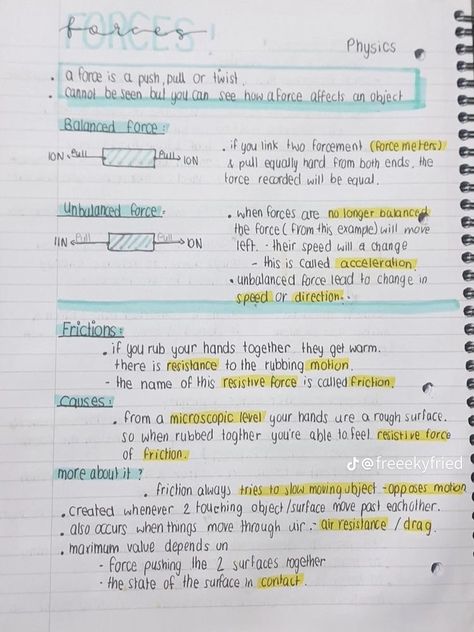 FORCES!
forces
Physics
. a force is a push, pull or twist.
. cannot be seen but you can see how a force affects an object
Balanced force:
10N Pull Pull 10N
. if you link two forcement (force meters)
& pull equally hard from both ends, the
force recorded will be equal.
Unbalanced force:
11N Pull Pull 10N
. when forces are no longer balanced
the force ( from this example) will move
left. - their speed will a change
- this is called acceleration.
. unbalanced force lead to change in
speed or direction.
Frictions:
. if you rub your hands together they get warm.
there is resistance to the rubbing motion.
- the name of this resistive force is called friction.
causes:
. from a microscopic level your hands are a rough surface.
so when rubbed togther you're able to feel resistive force
of friction.
@freeekyfried
more about it?
. friction always tries to slow moving object - opposes motion
. created whenever 2 touching object/surface move past eachother.
. also occurs when things move through air. - air resistance / drag.
. maximum value depends on
- force pushing the 2 surfaces together
- the state of the surface in contact.